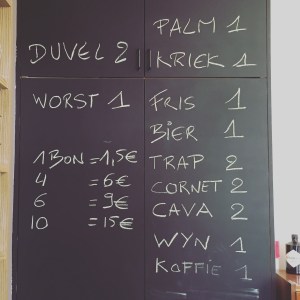 DUVEL 2
WORST 1
1 BON = 1,5€
4 = 6€
6 = 9€
10 = 15€
PALM 1
KRIEK 1
FRIS 1
BIER 1
TRAP 2
CORNET 2
CAVA 2
WYN 1
KOFFIE 1